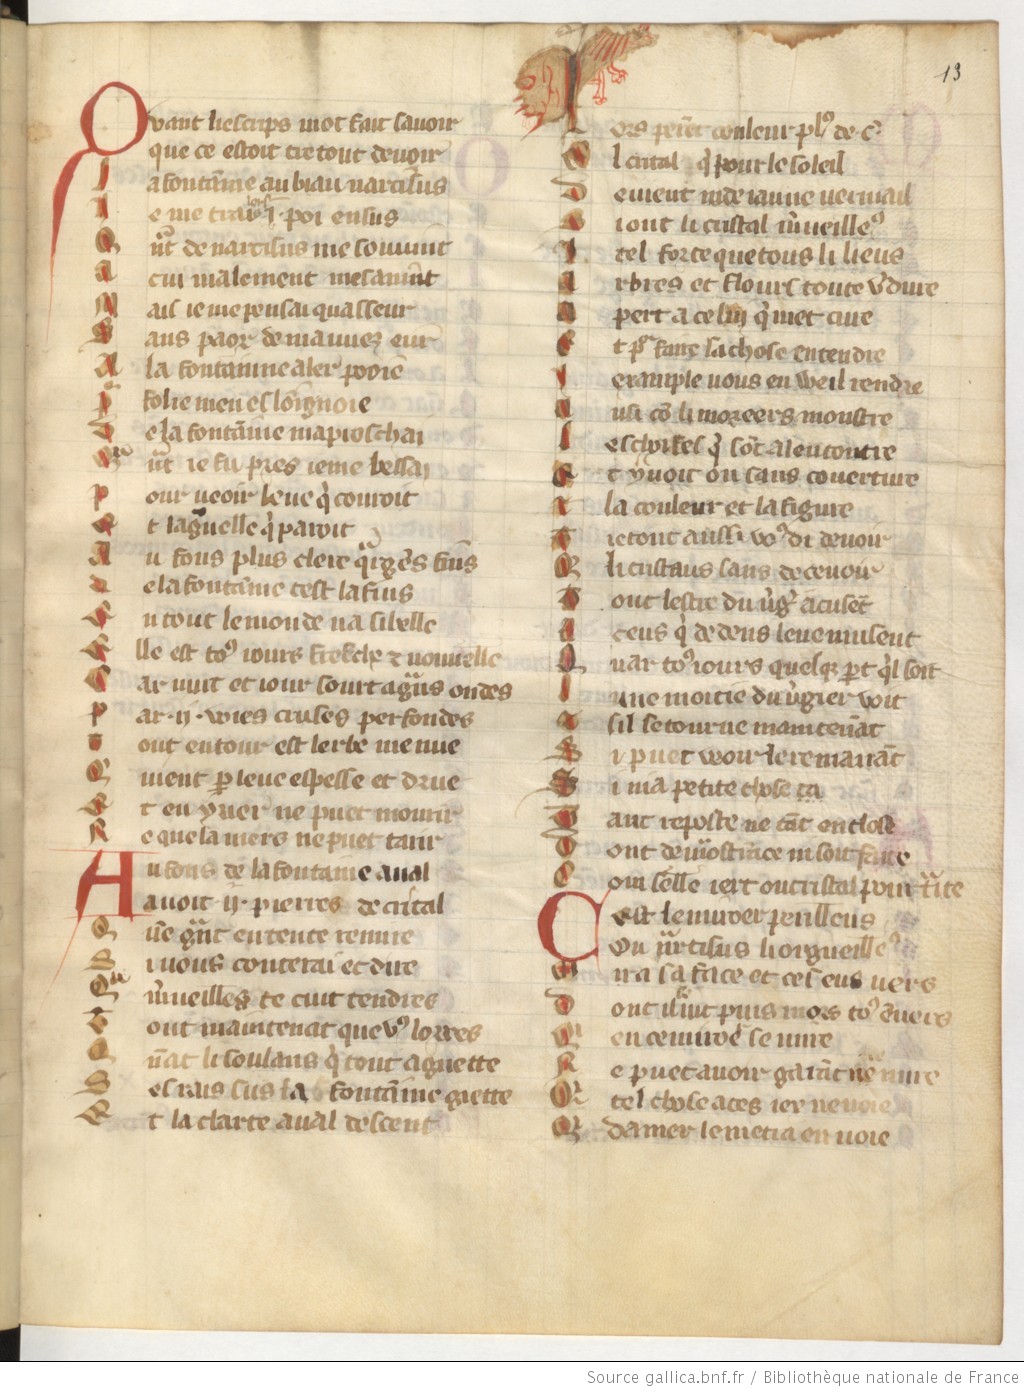 13
Quant li escrips mot fait savoir
que ce estoit tretout devoir
l a fontaīne au biau narcisus
I e me trais ·i· poi ensus
Q nt de narcisus me souvint
a cui malement mesavint
M ais ie me pensai quasseur
S ans paor de mauvez eur
A la fontainne aler pooie
p folie men esloignoie
D e la fontaīne maproschai
Qu nt ie fu pres ieme bessai
p our veoir leue q̇ couroit
e t la gͣuelle q̇ paroit
A u fons plus clere qͣrgēs fins
C e la fontaīne cest la fins
E n tout le monde na si belle
E lle est toꝰ iours freche ⁊ nouvelle
C ar nuit et iour sourt a gͣns ondes
p ar ·ii· voies cruses perfondes
T out entour est lerbe menue
Q vient ꝑ leue espesse et drue
E t en yver ne puet mourir
N e que la mers ne puet tarir
Au fons de la fontaine aval
avoit ·ii· pierres de cristal
Q
S i vous conterai et dire
Qu
T out maintenāt que vꝰ lorres
Q nāt li soulaus q̇ tout aguette
S es rais sus la fontaīne giette
E t la clarte aval descent
L ors perēt couleur plꝰ de ·c·
O l cristal q̇ pour le soleil
D evient inde iaune vermail
S iont li cristal m̄veilleꝰ
I tel force que tous li lieus
A rbres et flours toute vdure
A pert a celui q̇ met cure
E t pͬ faire la chose entendre
I exanple vous en weil rendre
A usi cō li moreers moustre
L es choses q̇ sōt alencontre
E t y voit on sans couverture
E t la couleur et la figure
T retout aussi voꝰ di devoir
Q li cristaus sans decevoir
T out lestre du v̄gͬ acusēt
A ceus q̇ dedens leve musent
Q uar toꝰ iours quelq̄ pt q̇l soit
l une moitie du v̄gier voit
E sil se tourne maintenāt
S i puet veoir le remanāt
S i na petite chose ca
T ant reposte ne tāt enclose
D ont demōstrāce ni soit faite
C om selle iert ou cristal pourtͣite
Cest le miroer perilleus
Ou nͣrcisus li orgueilleꝰ
M ira sa face et ces eus vers
D ont il iut puis mors toꝰ ēvers
Q en ce miroer se mire
N e puet avoir garāt ne mire
Q tel chose a ces ier ne voie
Q damer le metra en voie
Source gallica.bnf.fr / Bibliothèque nationale de France